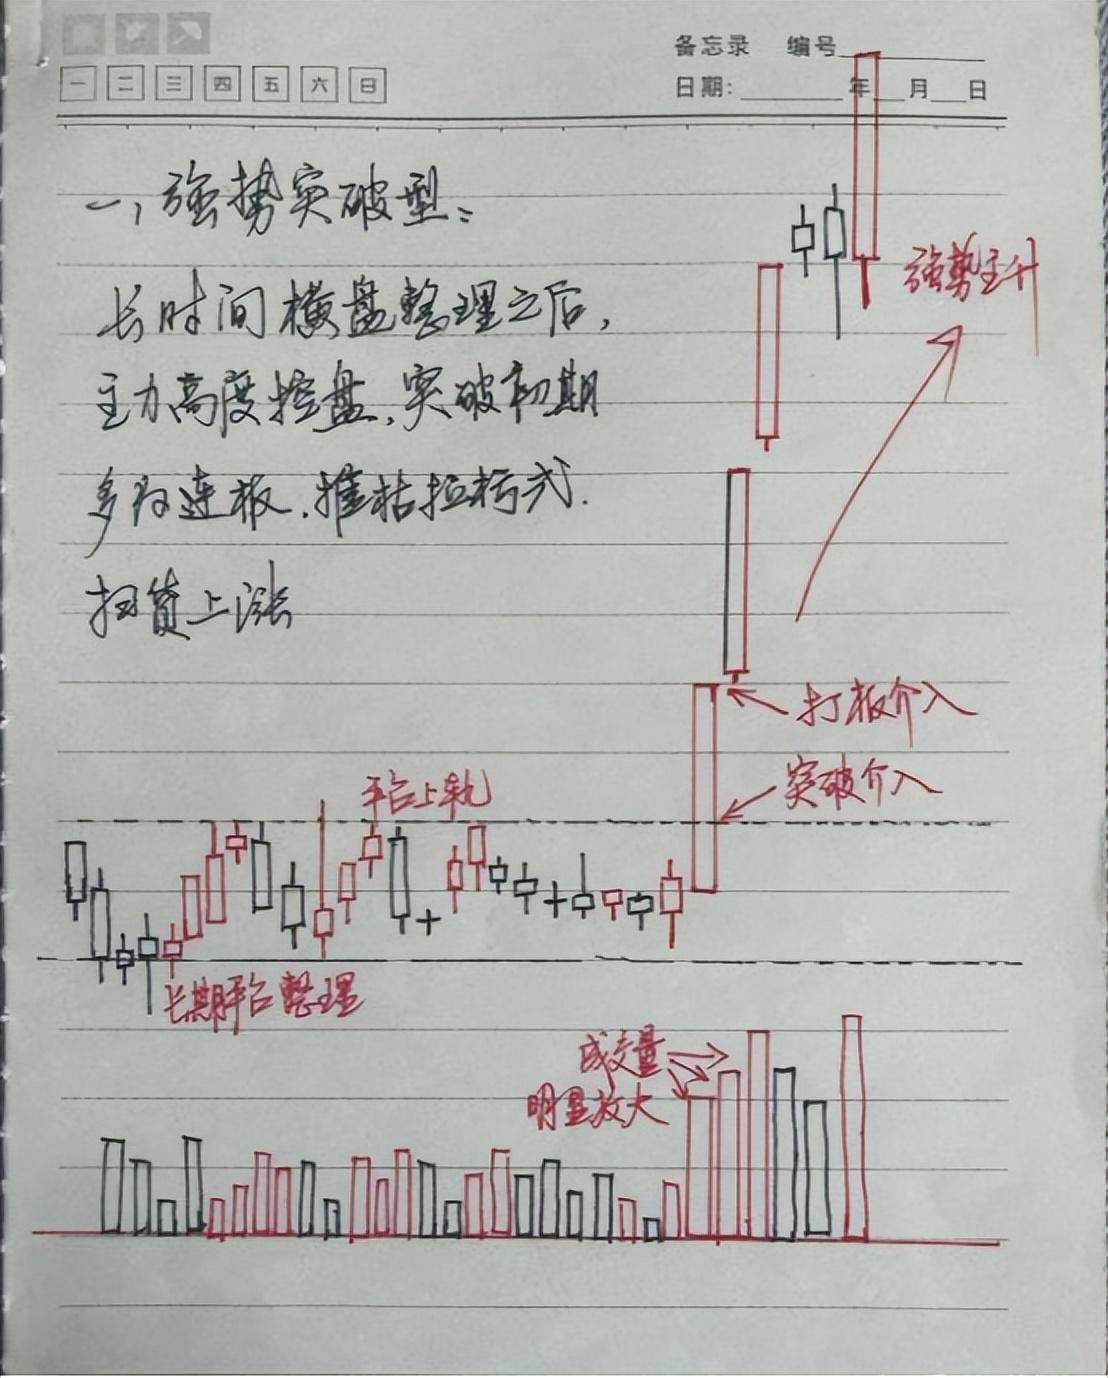 备忘录 编号
一 二 三 四 五 六 日
日期: 年 月 日
一、强势突破型:
长时间横盘整理之后,
主力高度控盘,突破初期
多为连板.摧枯拉朽式.
扫货上涨
强势主升
打板介入
突破介入
平台上轨
长期平台整理
成交量
明显放大